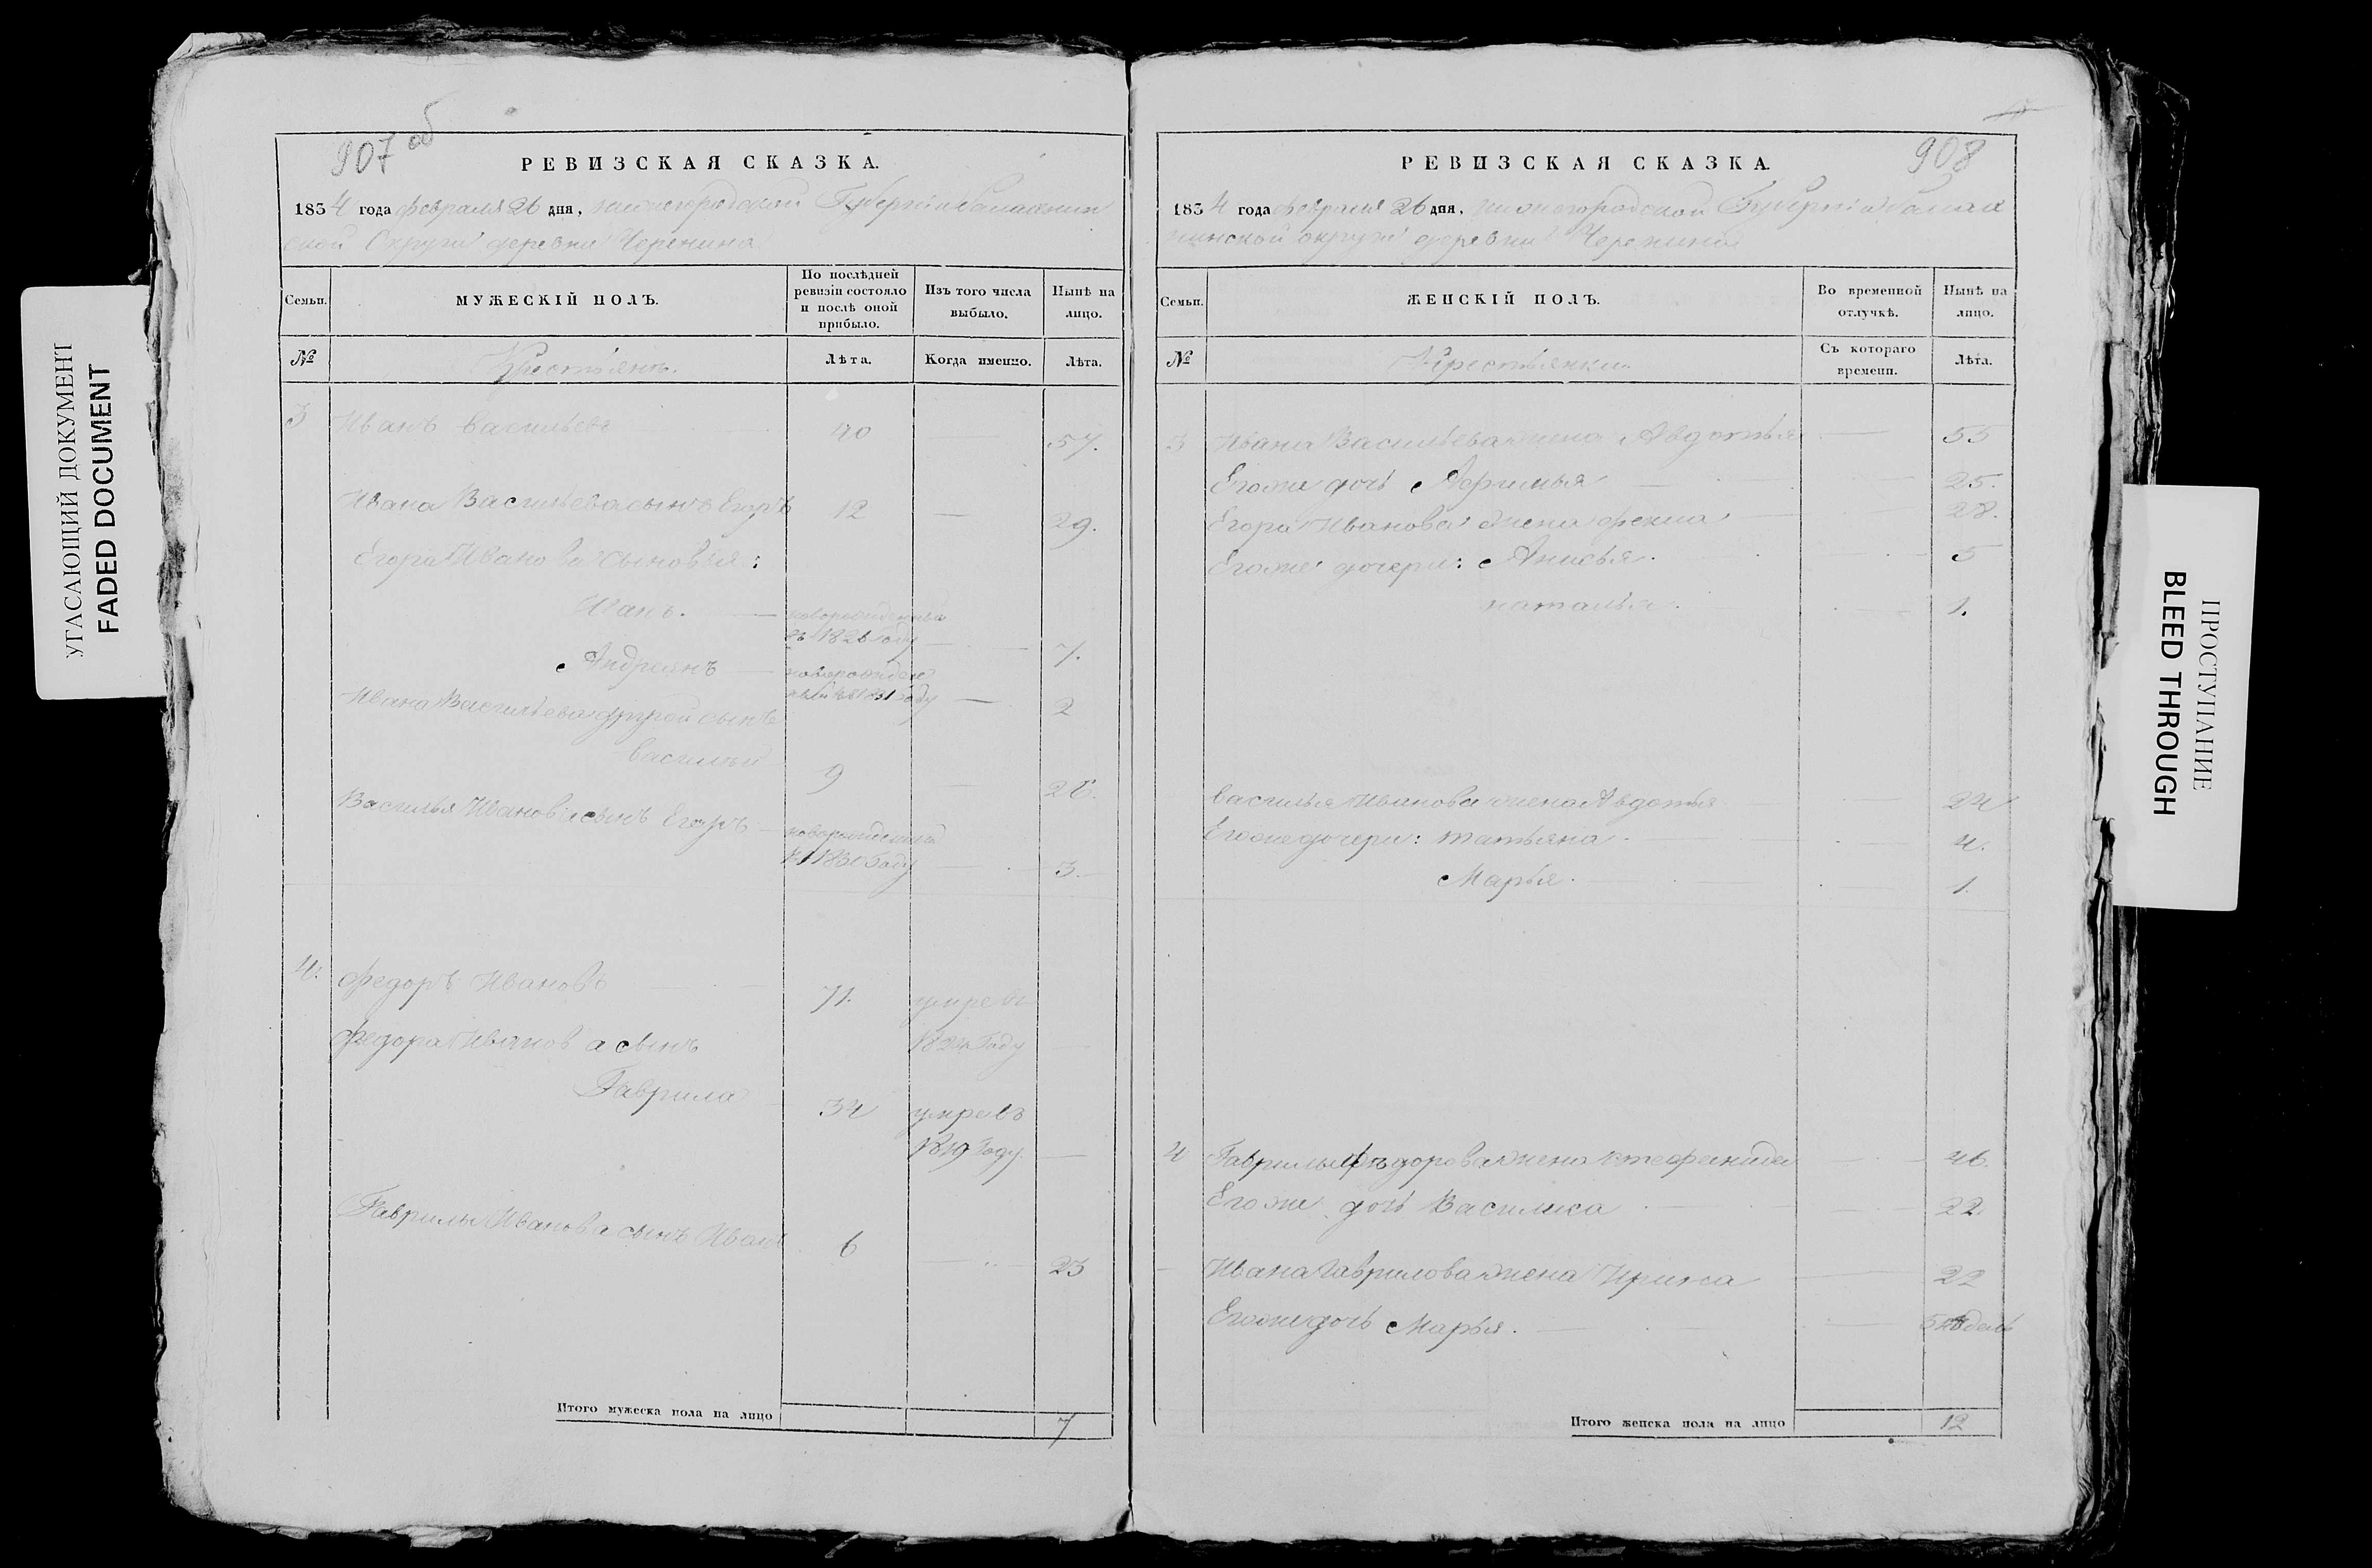 УГАСАЮЩИЙ ДОКУМЕНТ
FADED DOCUMENT
907 об
РЕВИЗСКАЯ СКАЗКА.
1834 года февраля 26 дня, нижегородской Губернии Балахнин
ской Округи деревни Черенина
Семьи.
МУЖЕСКІЙ ПОЛЪ.
По послѣдней ревизіи состояло и послѣ оной прибыло.
Изъ того числа выбыло.
Нынѣ на лицо.
№
Крестьянъ.
Лѣта.
Когда именно.
Лѣта.
3 Иванъ Васильевъ 40 — 57.
Ивана Васильева сынъ Егоръ 12 — 29.
Егора Иванова сыновья:
Иванъ. — новорожденный
въ 1826 Году — 7.
Андреянъ — новорожден
ный въ 1831 Году — 2
Ивана Васильева другой сынъ
Василий 9 — 26.
Василья Иванова сынъ Егоръ — новорожденный
въ 1830 Году — 3.
4. Федоръ Ивановъ 71. умре въ
1824 Году —
Федора Иванова сынъ
Гаврила 34 умре въ
1819 Году. —
Гаврилы Иванова сынъ Иванъ 6 — 23
Итого мужеска пола на лицо 7
908
РЕВИЗСКАЯ СКАЗКА.
1834 года февраля 26 дня, нижегородской Губернии балах
нинской округи деревни Черенина
Семьи.
ЖЕНСКІЙ ПОЛЪ.
Во временной отлучкѣ.
Нынѣ на лицо.
№
Крестьянки
Съ котораго времени.
Лѣта.
3 Ивана Васильева жена Авдотья — 55
Егоже дочь Афимья — 25.
Егора Иванова жена фекла — 28.
Егоже дочери: Анисья. — 5
наталья. — 1.
Василья Иванова жена Авдотья — 24
Егоже дочери: татьяна. — 4.
Марья. — 1.
4 Гаврилы Федорова жена стефанида — 46.
Егоже дочь Василиса — 22.
Ивана Гаврилова жена Ирина — 22
Егоже дочь Марья. — 5 недель
Итого женска пола на лицо 12
ПРОСТУПАНИЕ
BLEED THROUGH